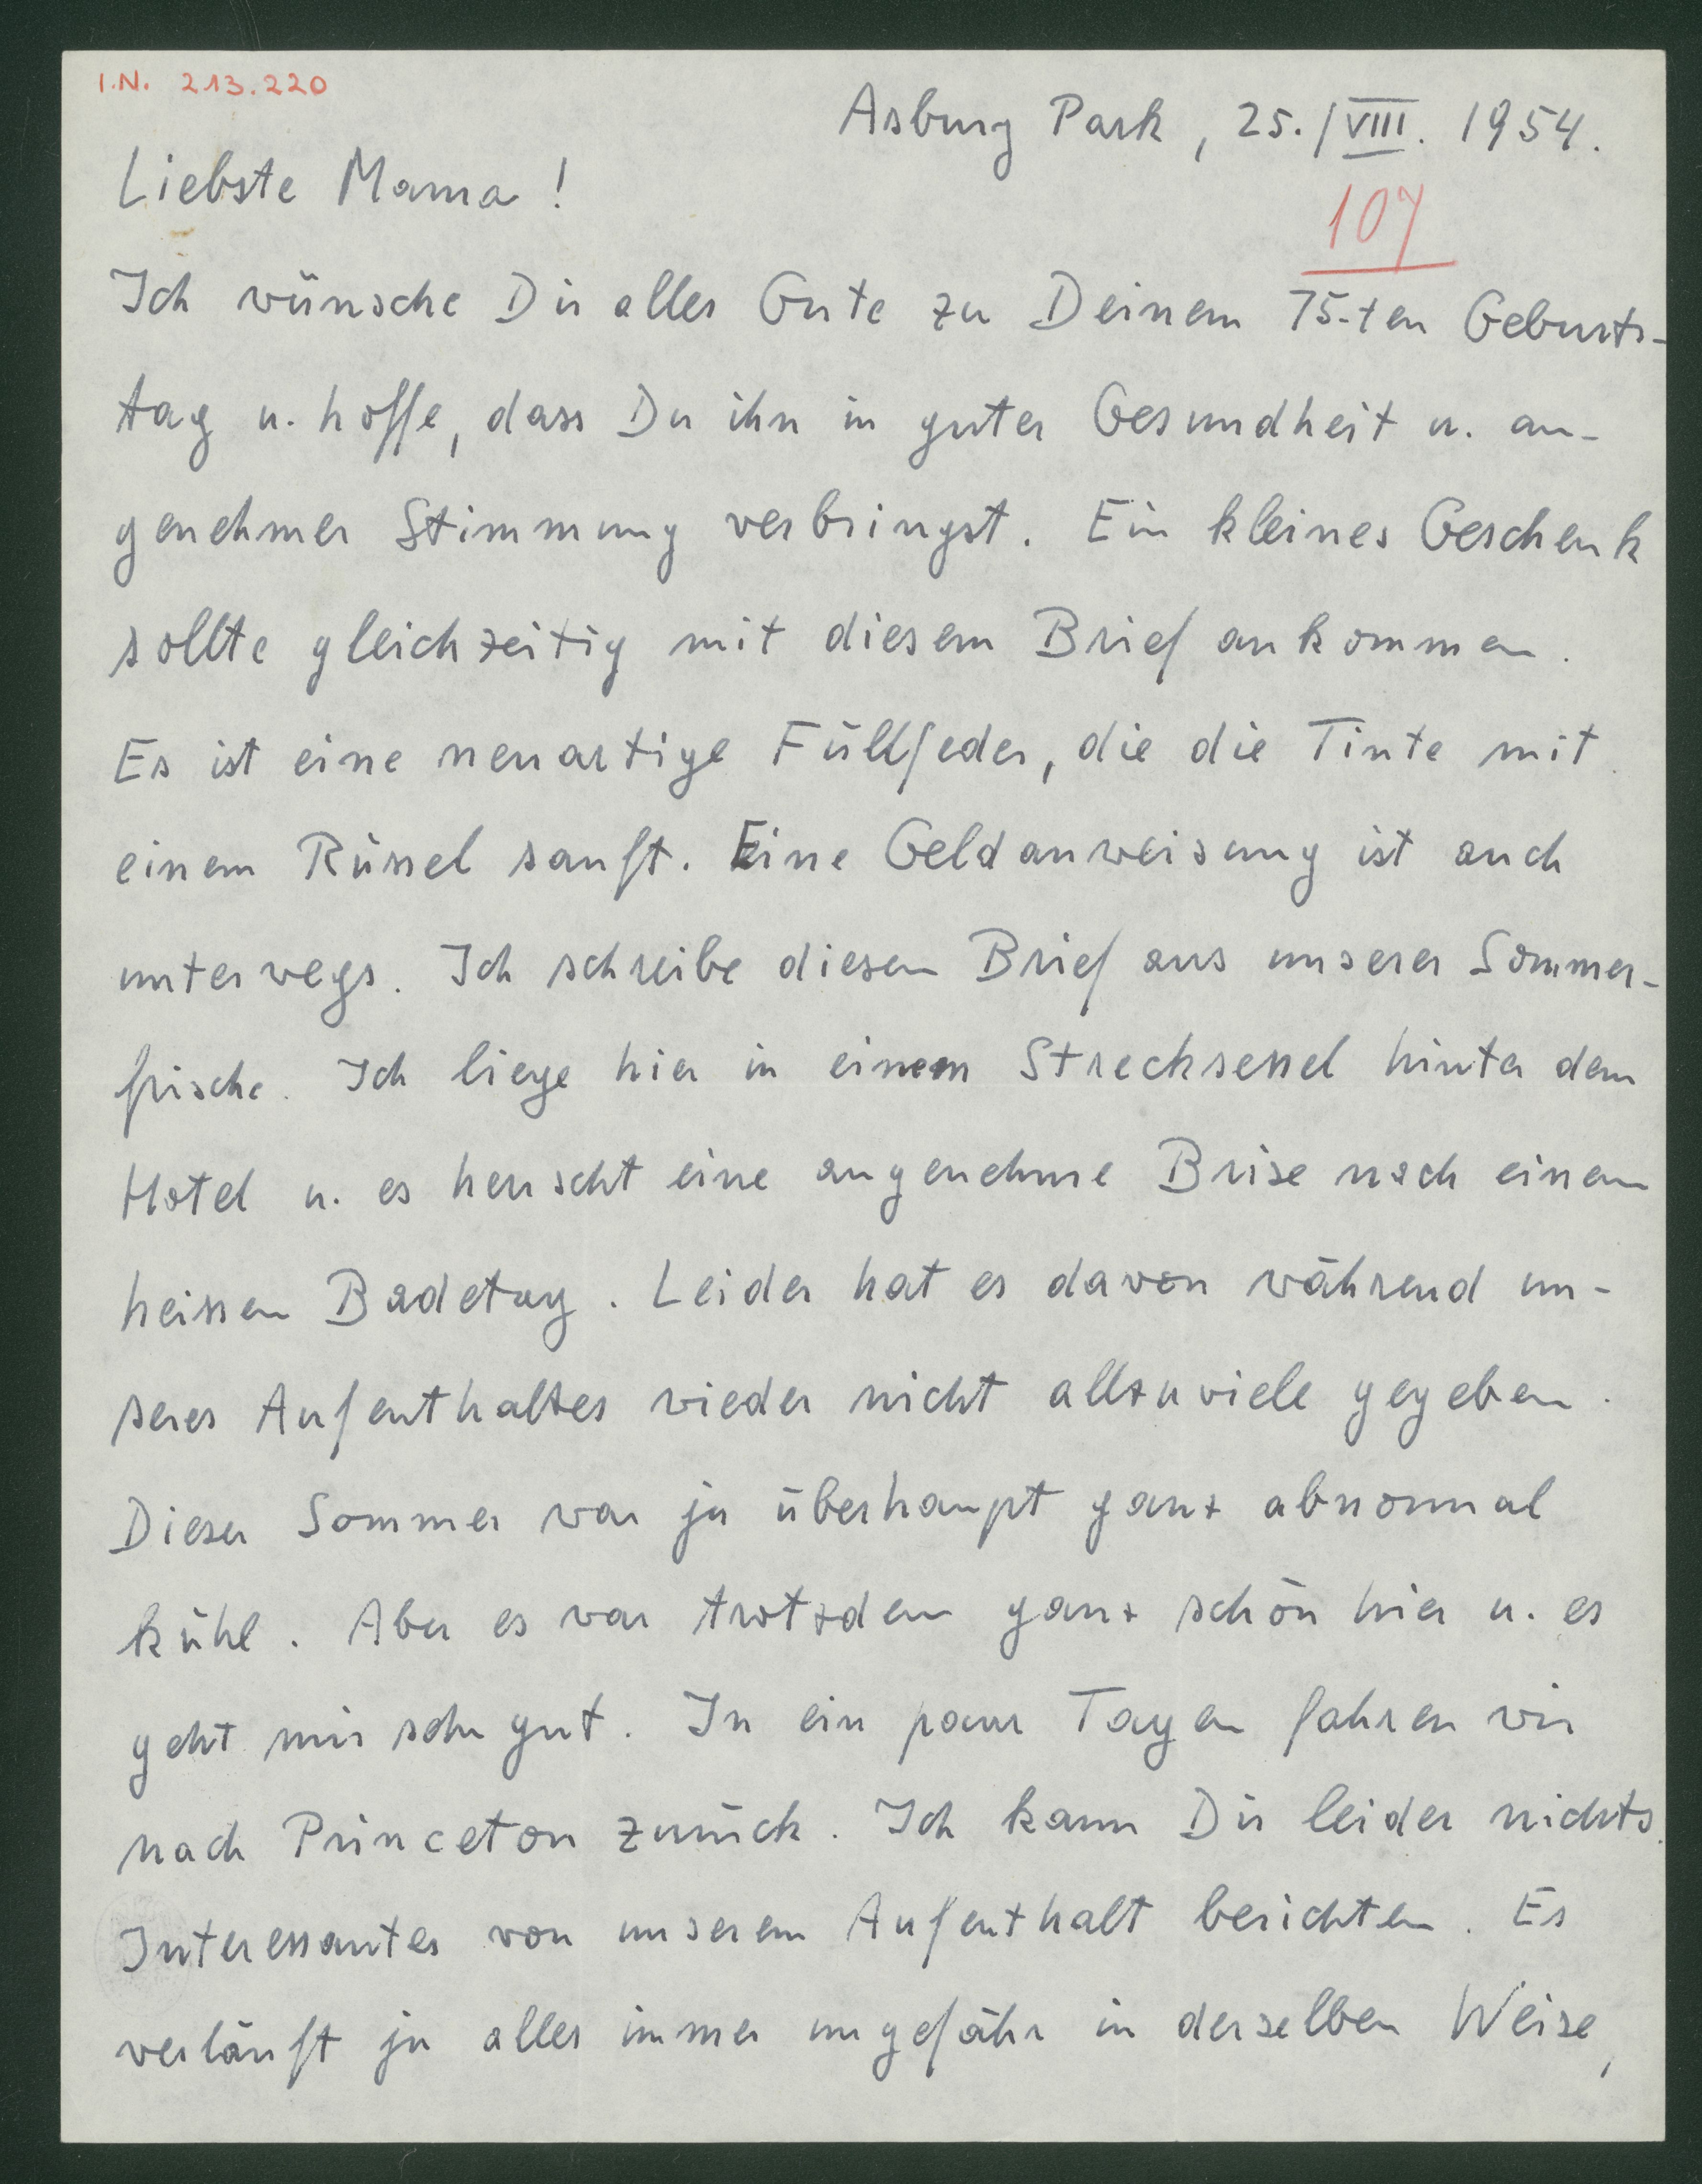 I.N. 213.220
Asbury Park, 25./VIII. 1954.
Liebste Mama!
107
Ich wünsche Dir alles Gute zu Deinem 75-ten Geburts-
tag u. hoffe, dass Du ihn in guter Gesundheit u. an-
genehmer Stimmung verbringst. Ein kleines Geschenk
sollte gleichzeitig mit diesem Brief ankommen.
Es ist eine neuartige Füllfeder, die die Tinte mit
einem Rüssel sauft. Eine Geldanweisung ist auch
unterwegs. Ich schreibe diesen Brief aus unserer Sommer-
frische. Ich liege hier in einem Strecksessel hinter dem
Hotel u. es herrscht eine angenehme Brise nach einem
heissen Badetag. Leider hat es davon während un-
seres Aufenthaltes wieder nicht allzuviele gegeben.
Dieser Sommer war ja überhaupt ganz abnormal
kühl. Aber es war trotzdem ganz schön hier u. es
geht mir sehr gut. In ein paar Tagen fahren wir
nach Princeton zurück. Ich kann Dir leider nichts
Interessantes von unserem Aufenthalt berichten. Es
verläuft ja alles immer ungefähr in derselben Weise,